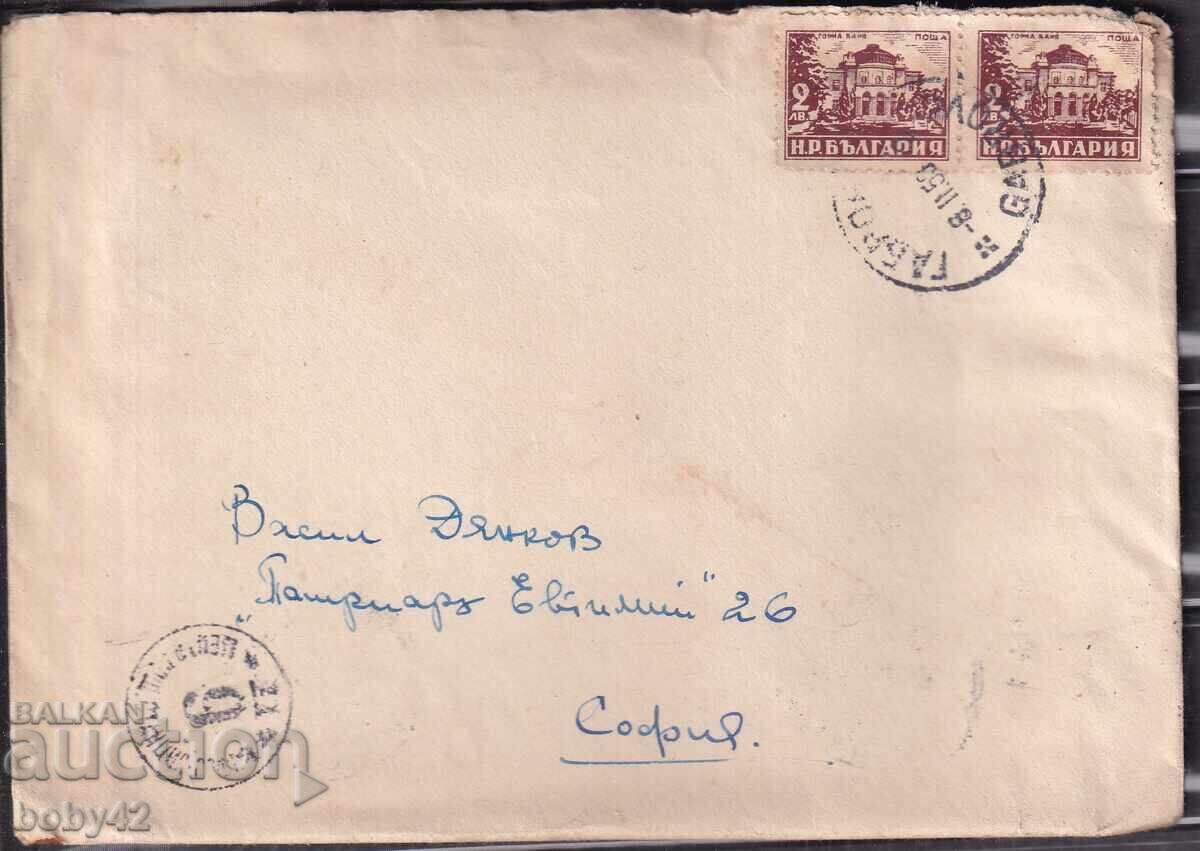 ГОРНА БАНЯ ПОЩА
2 ЛВ.
Н.Р.БЪЛГАРИЯ
ГОРНА БАНЯ ПОЩА
2 ЛВ.
Н.Р.БЪЛГАРИЯ
-8.II.50
ГАБРОВО
Васил Дянков
"Патриарх Евтимий" 26
София.
BALKAN
auction
boby42